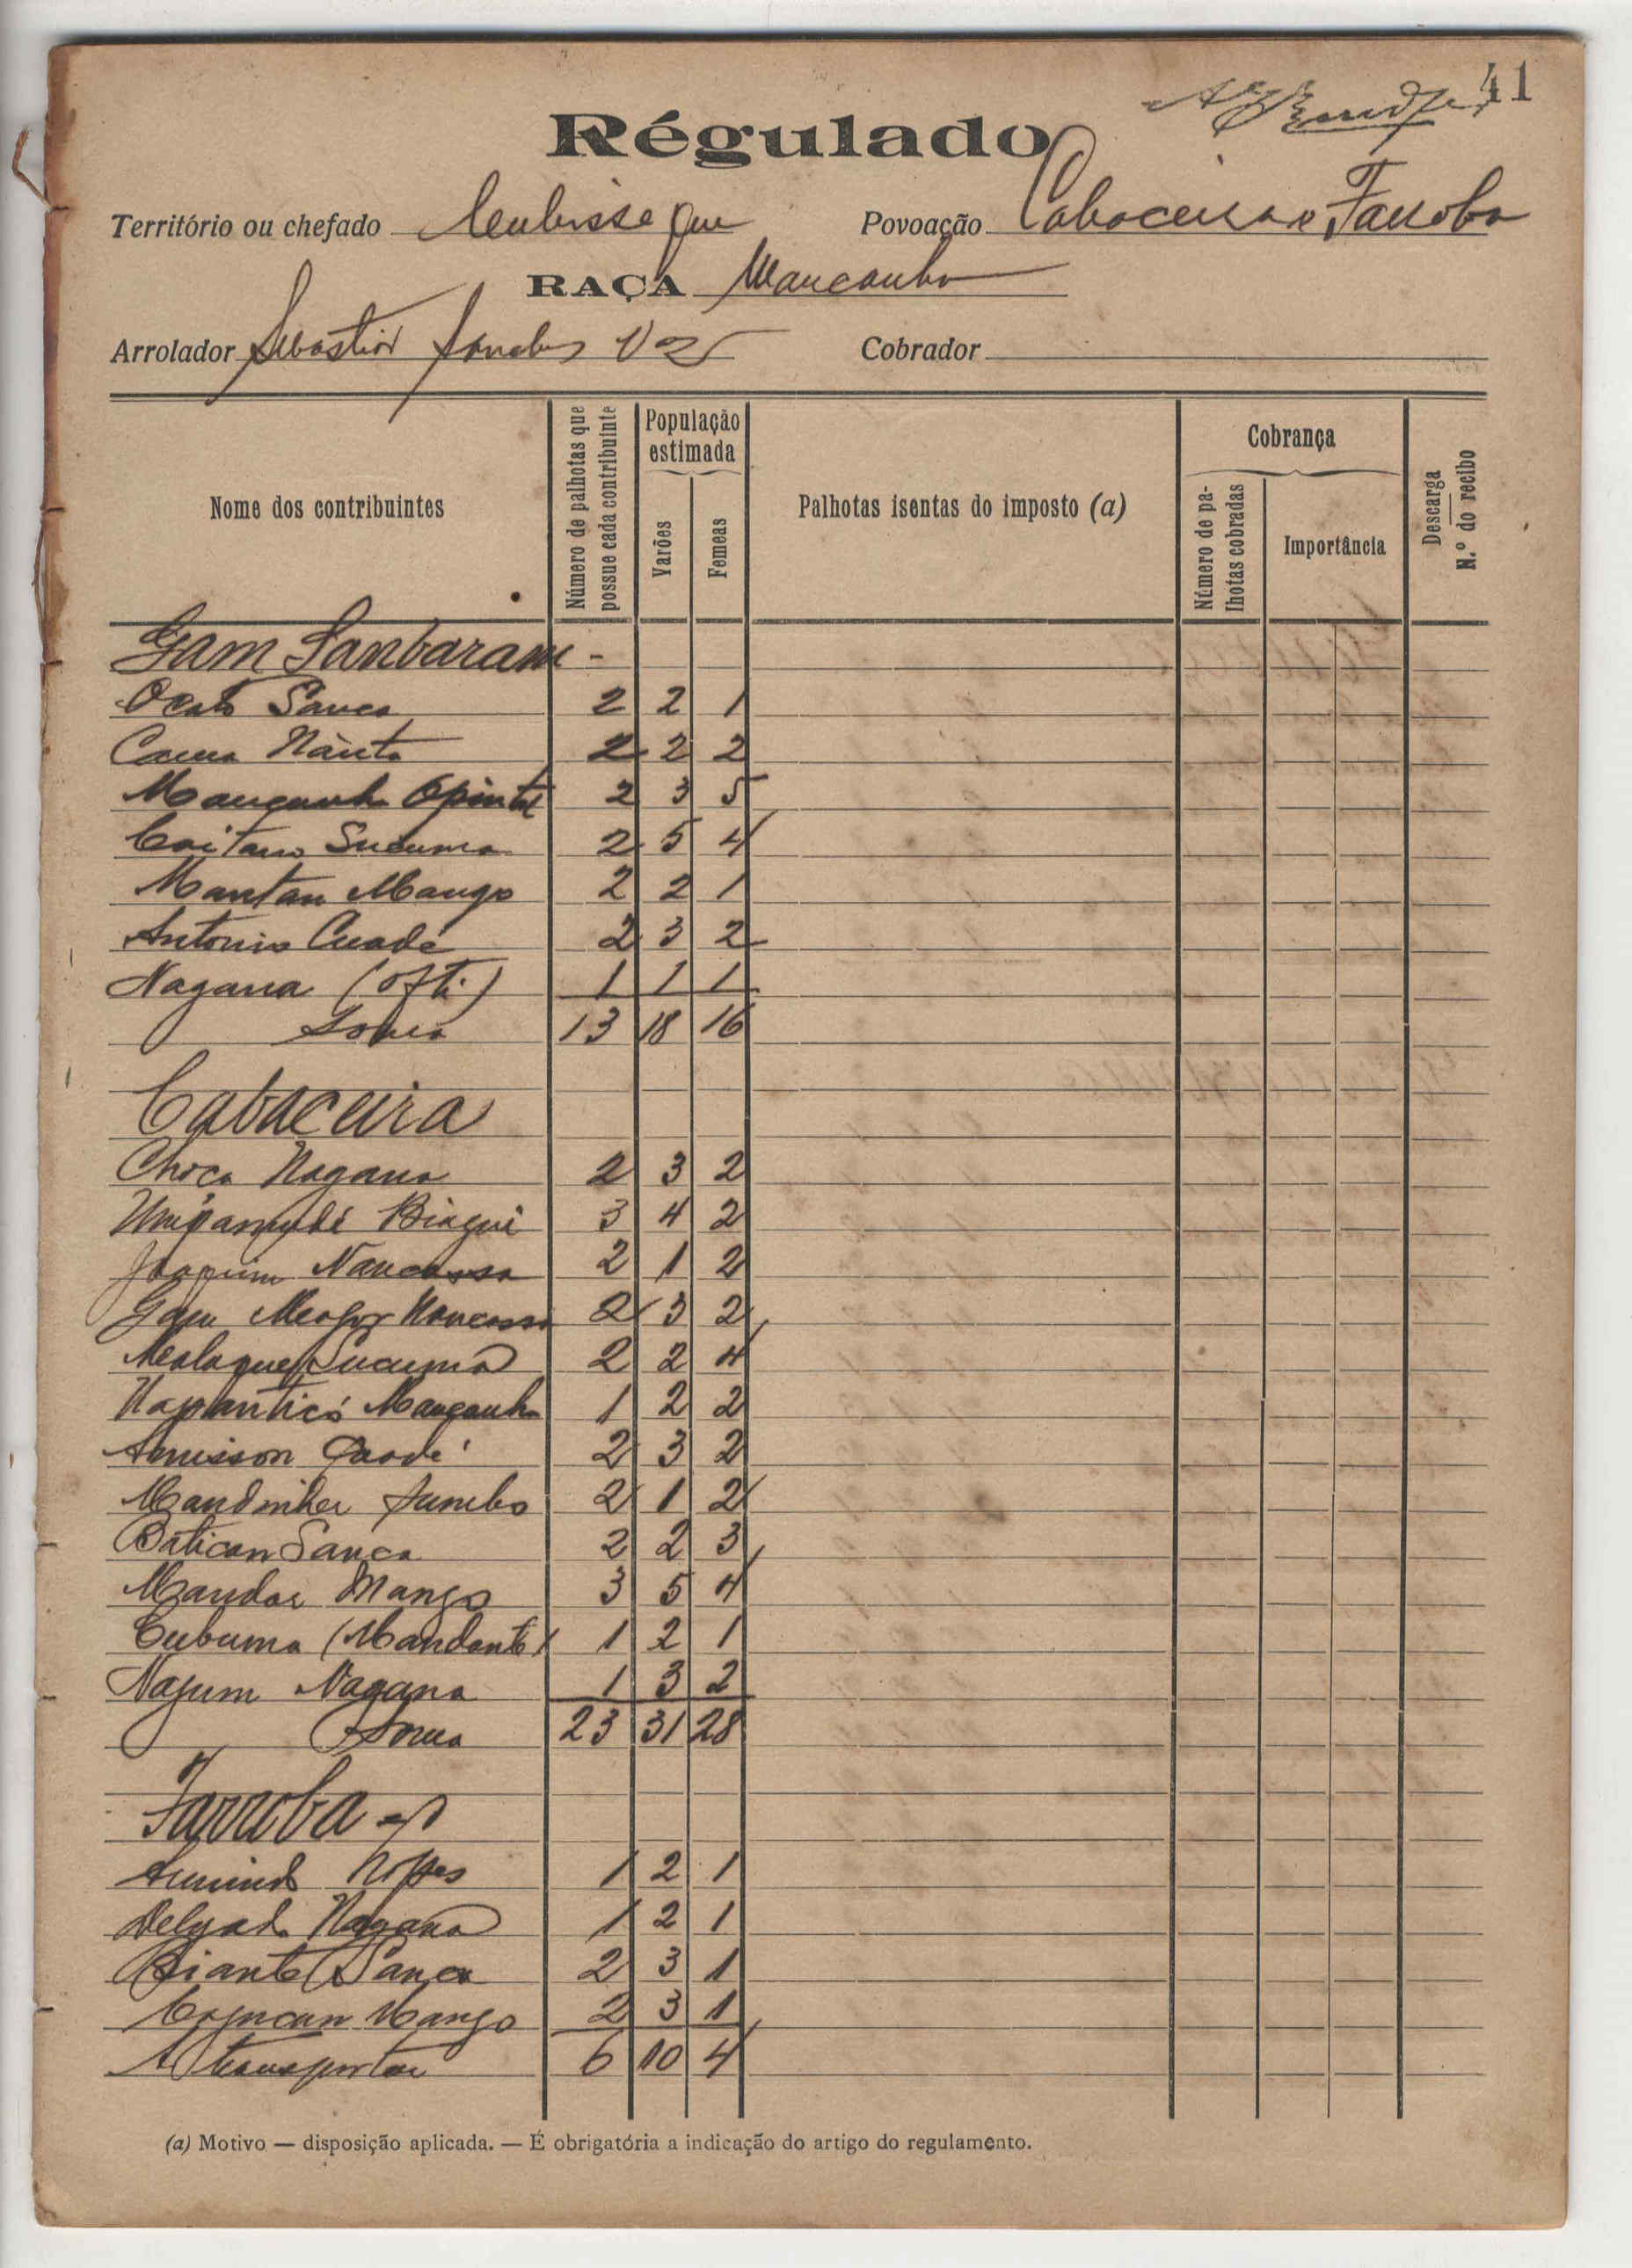 41
Régulado
Território ou chefado Povoação Cabaceira e Farroba
RAÇA Mancanha
Arrolador Sebastião Sanches Vaz Cobrador
Nome dos contribuintes
Número de palhotas que possue cada contribuinte
População estimada
Varões
Femeas
Palhotas isentas do imposto (a)
Cobrança
Número de palhotas cobradas
Importância
Descarga
N.º do recibo
Gam Sanbaram -
Sanca 2 2 1
Nanto 2 2 2
Mancanha 2 3 5
Caitano Sucuma 2 5 4
Mantan Mango 2 2 1
Antonio Cuadé 2 3 2
Nagana 1 1 1
Soma 13 18 16
Cabaceira
Choca Nagana 2 3 2
Biagui 3 4 2
Joaquim Nancassa 2 1 2
Nancassa 2 3 2
Sucuma 2 2 4
Mancanha 1 2 2
2 3 2
2 1 2
Batican Sanca 2 2 3
Mango 3 5 4
Cubuma 1 2 1
Nagana 1 3 2
Soma 23 31 28
Farroba
Lopes 1 2 1
Delgado Nagana 1 2 1
Biante Sanca 2 3 1
Mango 2 3 1
A transportar 6 10 4
(a) Motivo — disposição aplicada. — É obrigatória a indicação do artigo do regulamento.